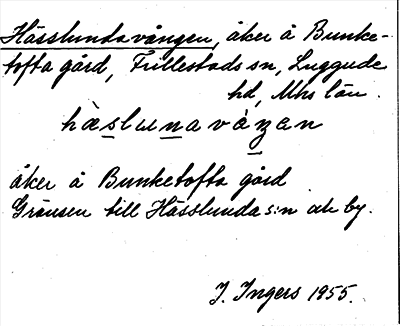 Hässlundavången, åker å Bunke-
tofta gård, Frillestads sn, Luggude
hd, Mhs län.
hàslunavàŋen
åker å Bunketofta gård
Gränsen till Hässlunda s:n och by.
J. Ingers 1955.